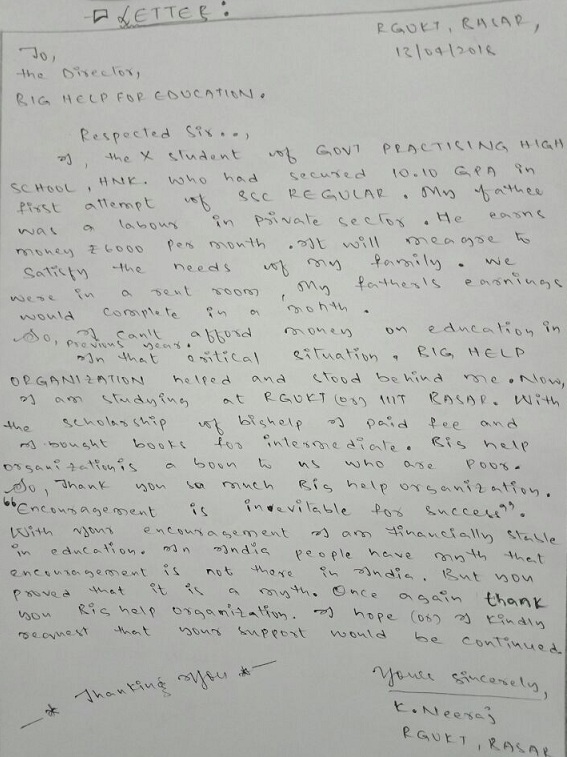 LETTER :
RGUKT, BASAR,
13/04/2018
To,
the Director,
BIG HELP FOR EDUCATION.
Respected Sir..,
I, the X student of GOVT PRACTISING HIGH
SCHOOL, HNK. Who had secured 10.10 GPA in
first attempt of SSC REGULAR. My father
was a labour in private sector. He earns
money ₹6000 per month. It will meagre to
satisfy the needs of my family. We
were in a rent room, My father's earnings
would complete in a month.
So, I can't afford money on education in
previous year.
In that critical situation, BIG HELP
ORGANIZATION helped and stood behind me. Now,
I am studying at RGUKT (or) IIIT BASAR. With
the scholarship of bighelp I paid fee and
I bought books for intermediate. Big help
organization is a boon to us who are poor.
So, Thank you so much Big help organization.
"Encouragement is inevitable for success".
With your encouragement I am financially stable
in education. In India people have myth that
encouragement is not there in India. But you
proved that it is a myth. Once again thank
you Big help organization. I hope (or) I kindly
request that your support would be continued
* Thanking You *
Yours sincerely,
K. Neeraj
RGUKT, BASAR